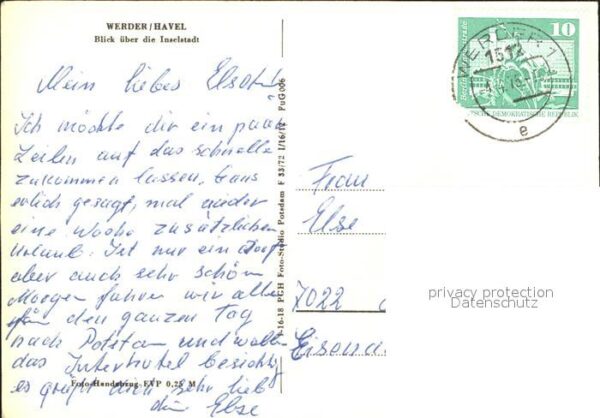 WERDER/HAVEL
Blick über die Inselstadt
Mein liebes
Ich möchte dir ein paar
Zeilen auf das schnelle
zukommen lassen, Ganz
ehrlich gesagt, mal wieder
eine Woche zusätzlichen
Urlaub. Ist nur ein Dorf
aber auch sehr schön
Morgen fahren wir alle
für den ganzen Tag
nach Potsdam und wollen
das Interhotel besichtig
es grüßt dich sehr lieb
die Else
Foto-Handabzug EVP 0,25 M
PGH Foto-Studio Potsdam F 53/72 I/16/12 FuG006
10
WERDER 1
1512
e
DEMOKRATISCHE REPUBLIK
Frau
Else
7022
privacy protection
Datenschutz